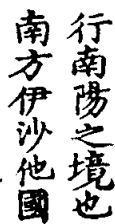 行南陽之境也
南方伊沙他國